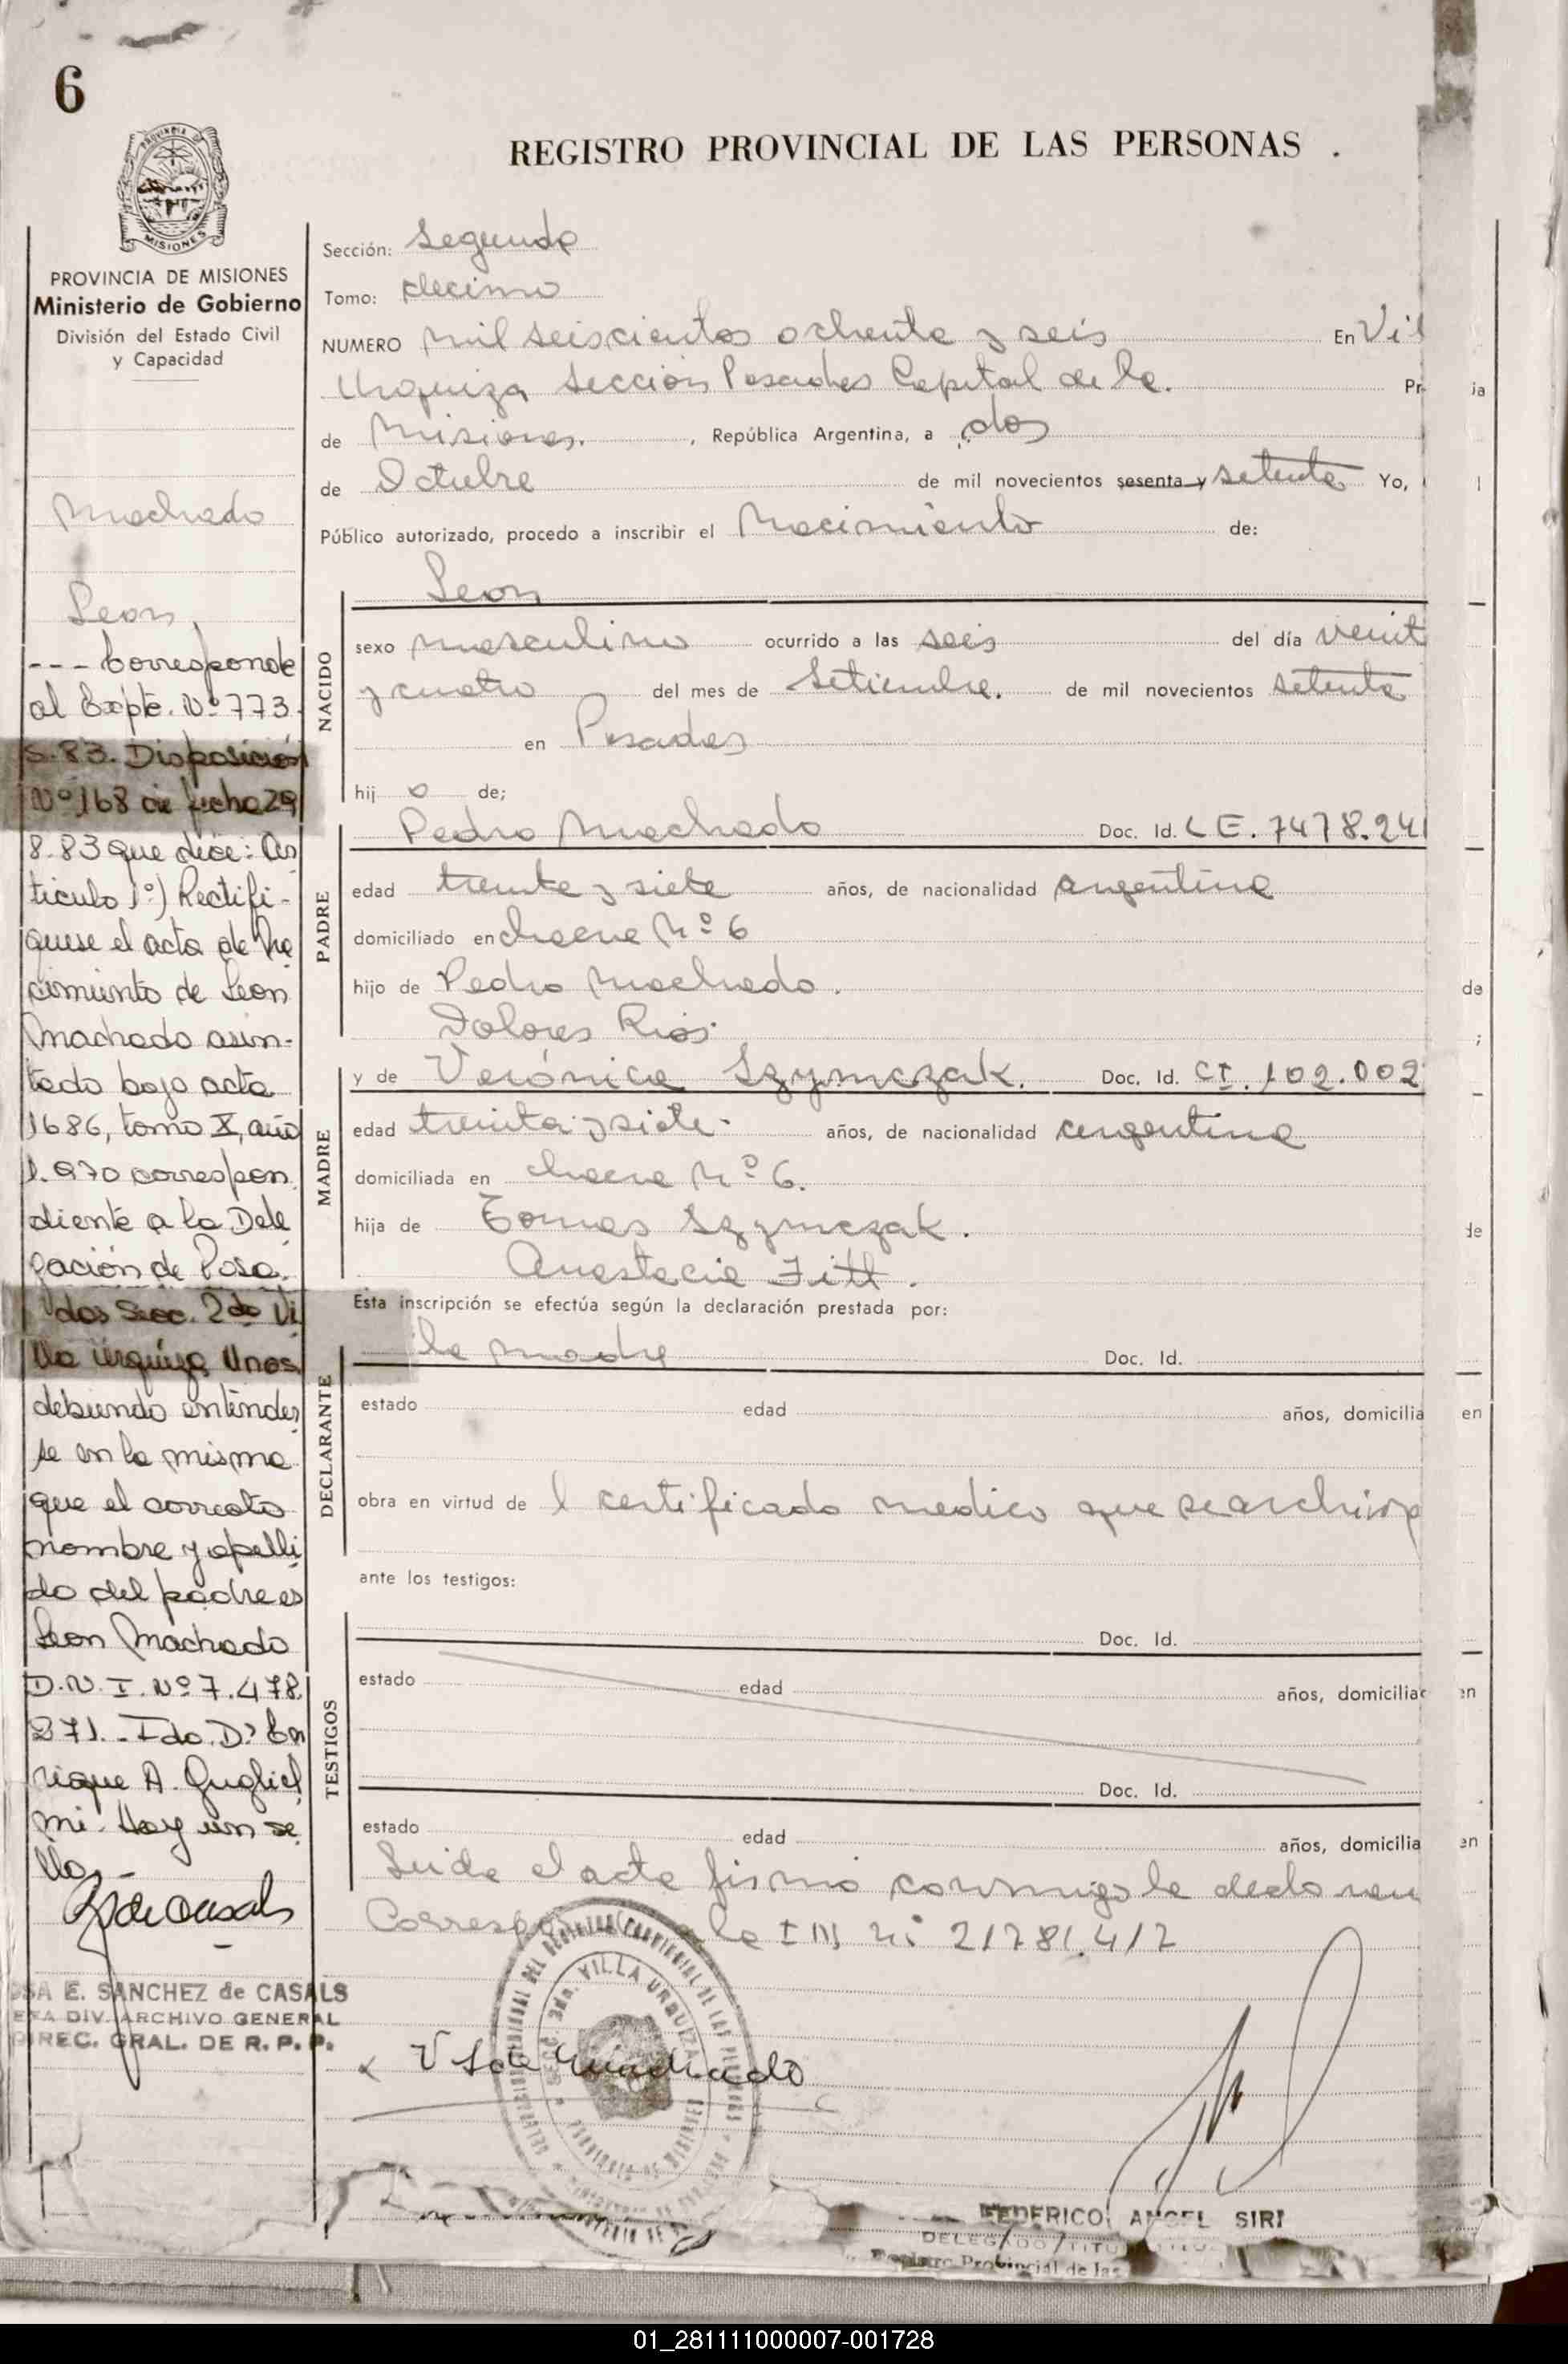 6
REGISTRO PROVINCIAL DE LAS PERSONAS .
PROVINCIA DE MISIONES
Ministerio de Gobierno
División del Estado Civil
y Capacidad
Machado
Leon
--- Corresponde
al Expte. Nº 773-
S-83. Disposición
Nº 168 de fecha 29
8.83 que dice: Ar
ticulo 1º) Rectifi-
quese el acta de Na
cimiento de Leon
Machado asen-
tado bajo acta
1686, tomo X, año
1.970 correspon
diente a la Dele
gación de Posa
das Secc. 2da Vi
lla Urquiza Mnes.
debiendo entender
se en la misma
que el correcto
nombre y apelli
do del padre es
Leon Machado
D.N.I. Nº 7.478.
271.- Fdo. Dr En
rique A. Gugliel
mi. Hay un se
llo.-
SA E. SANCHEZ de CASALS
DIV. ARCHIVO GENERAL
DIREC. GRAL. DE R. P. P.
Sección: Segunda
Tomo: decimo
NUMERO Mil seiscientos ochenta y seis En Vil
Urquiza Sección Posadas Capital de la. Pr ia
de Misiones. , República Argentina, a dos
de Octubre de mil novecientos sesenta y setenta Yo,
Público autorizado, procedo a inscribir el Nacimiento de:
NACIDO
Leon
sexo masculino ocurrido a las seis del día veint
y cuatro del mes de Setiembre. de mil novecientos setenta
en Posadas
hij o de;
PADRE
Pedro Machado Doc. Id. L E. 7478.241
edad treinta y siete años, de nacionalidad argentina
domiciliado en chacra Nº 6
hijo de Pedro Machado. de
Dolores Rios. ;
MADRE
y de Verónica Szymczak. Doc. Id. CI. 102.002
edad treinta y siete. años, de nacionalidad argentina
domiciliada en chacra Nº 6.
hija de Tomas Szymczak. de
Anastacia Fitl.
Esta inscripción se efectúa según la declaración prestada por:
DECLARANTE
la madre Doc. Id.
estado edad años, domicilia en
obra en virtud de l certificado medico que se archiva
ante los testigos:
TESTIGOS
Doc. Id.
estado edad años, domicilia en
Doc. Id.
estado edad años, domicilia en
Leida el acta firmó conmigo la declaran
Corresponde la I M Nº 21.781.417
V S de Machado
SECC. 2da. VILLA URQUIZA
PROVINCIA DE MISIONES
FEDERICO ANGEL SIRI
DELEGADO TITU
Registro Provincial de las
01_281111000007-001728